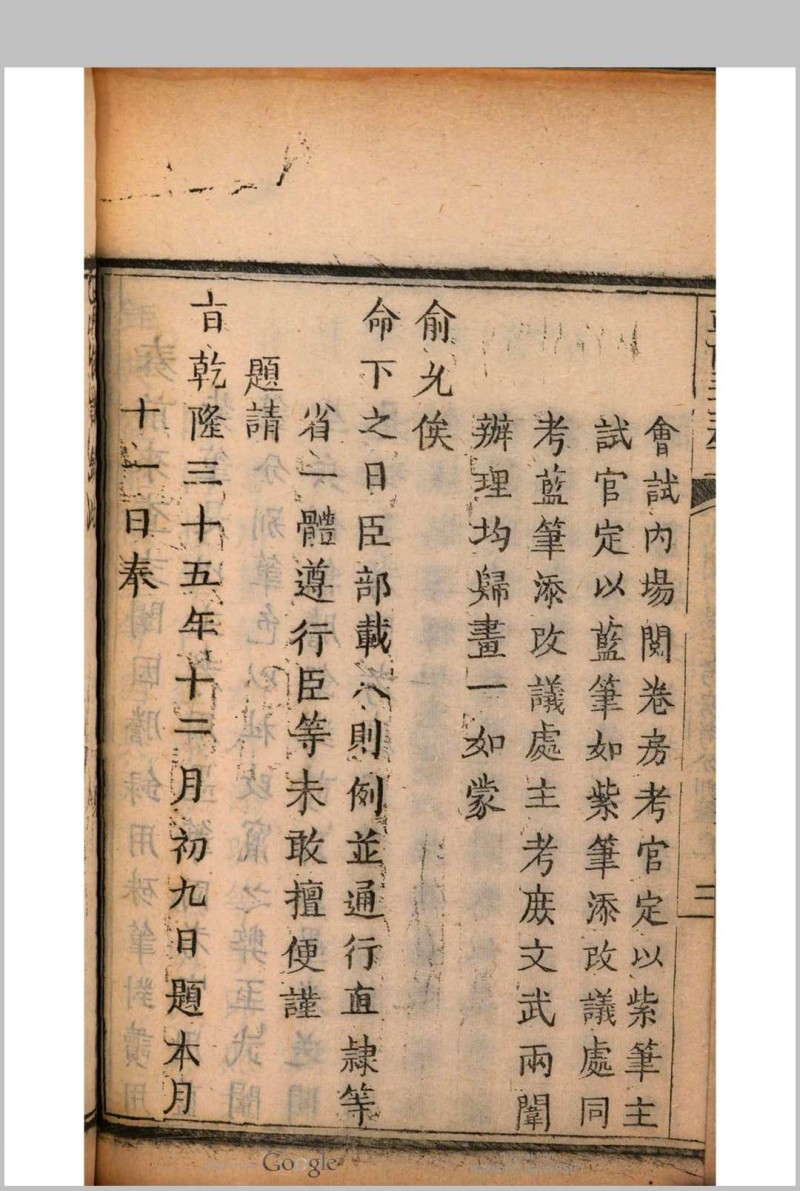 會試內場閱卷房考官定以紫筆主
試官定以藍筆如紫筆添改議處同
考藍筆添改議處主考庻文武兩闈
辦理均歸畫一如蒙
俞允俟
命下之日臣部載入則例並通行直隷等
省一體遵行臣等未敢擅便謹
題請
㫖乾隆三十五年十二月初九日題本月
十一日奉
三
Google